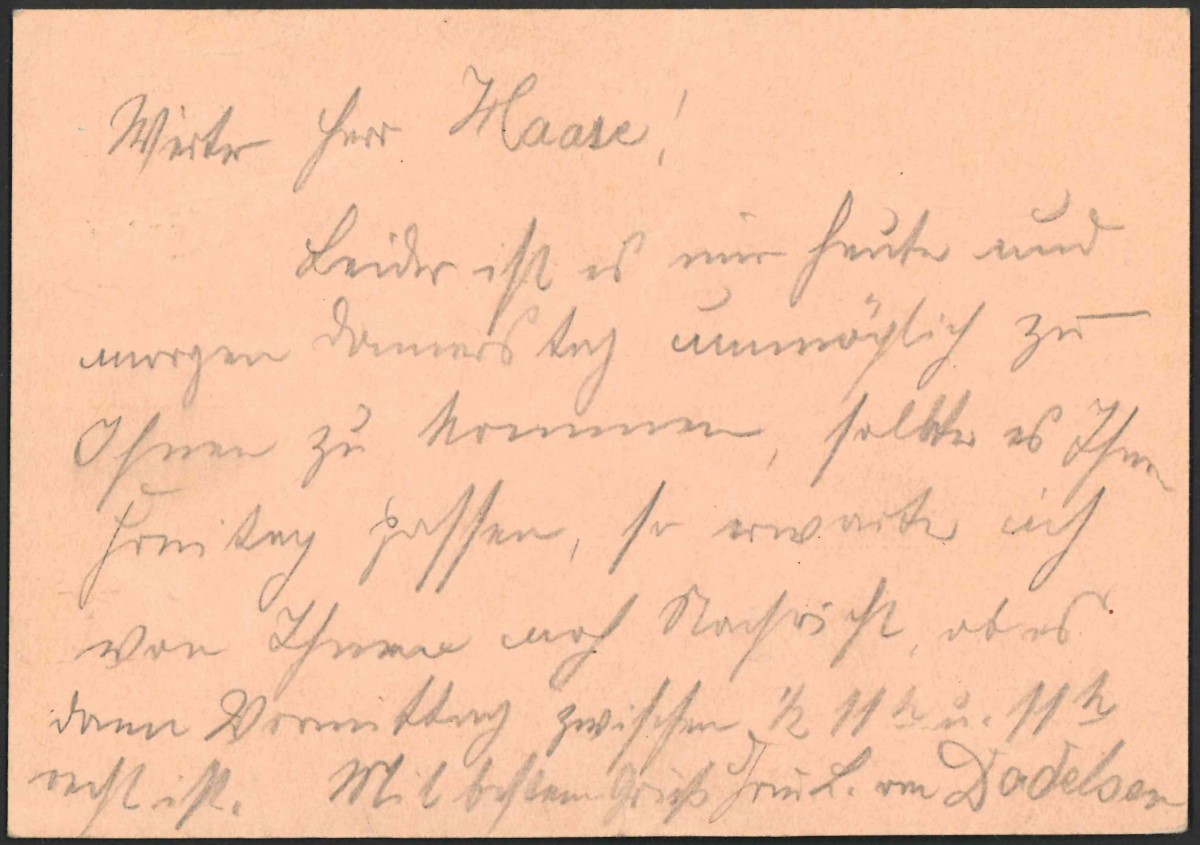 Werter Herr Haase!
Leider ist es mir heute und
morgen Donnerstag unmöglich zu
Ihnen zu kommen, sollte es Ihnen
Freitag passen, so erwarte ich
von Ihnen noch Nachricht, ob es
dann Vormittag zwischen ½ 11 h u. 11 h
recht ist. Mit bestem Gruß Frau L. von Dadelsen